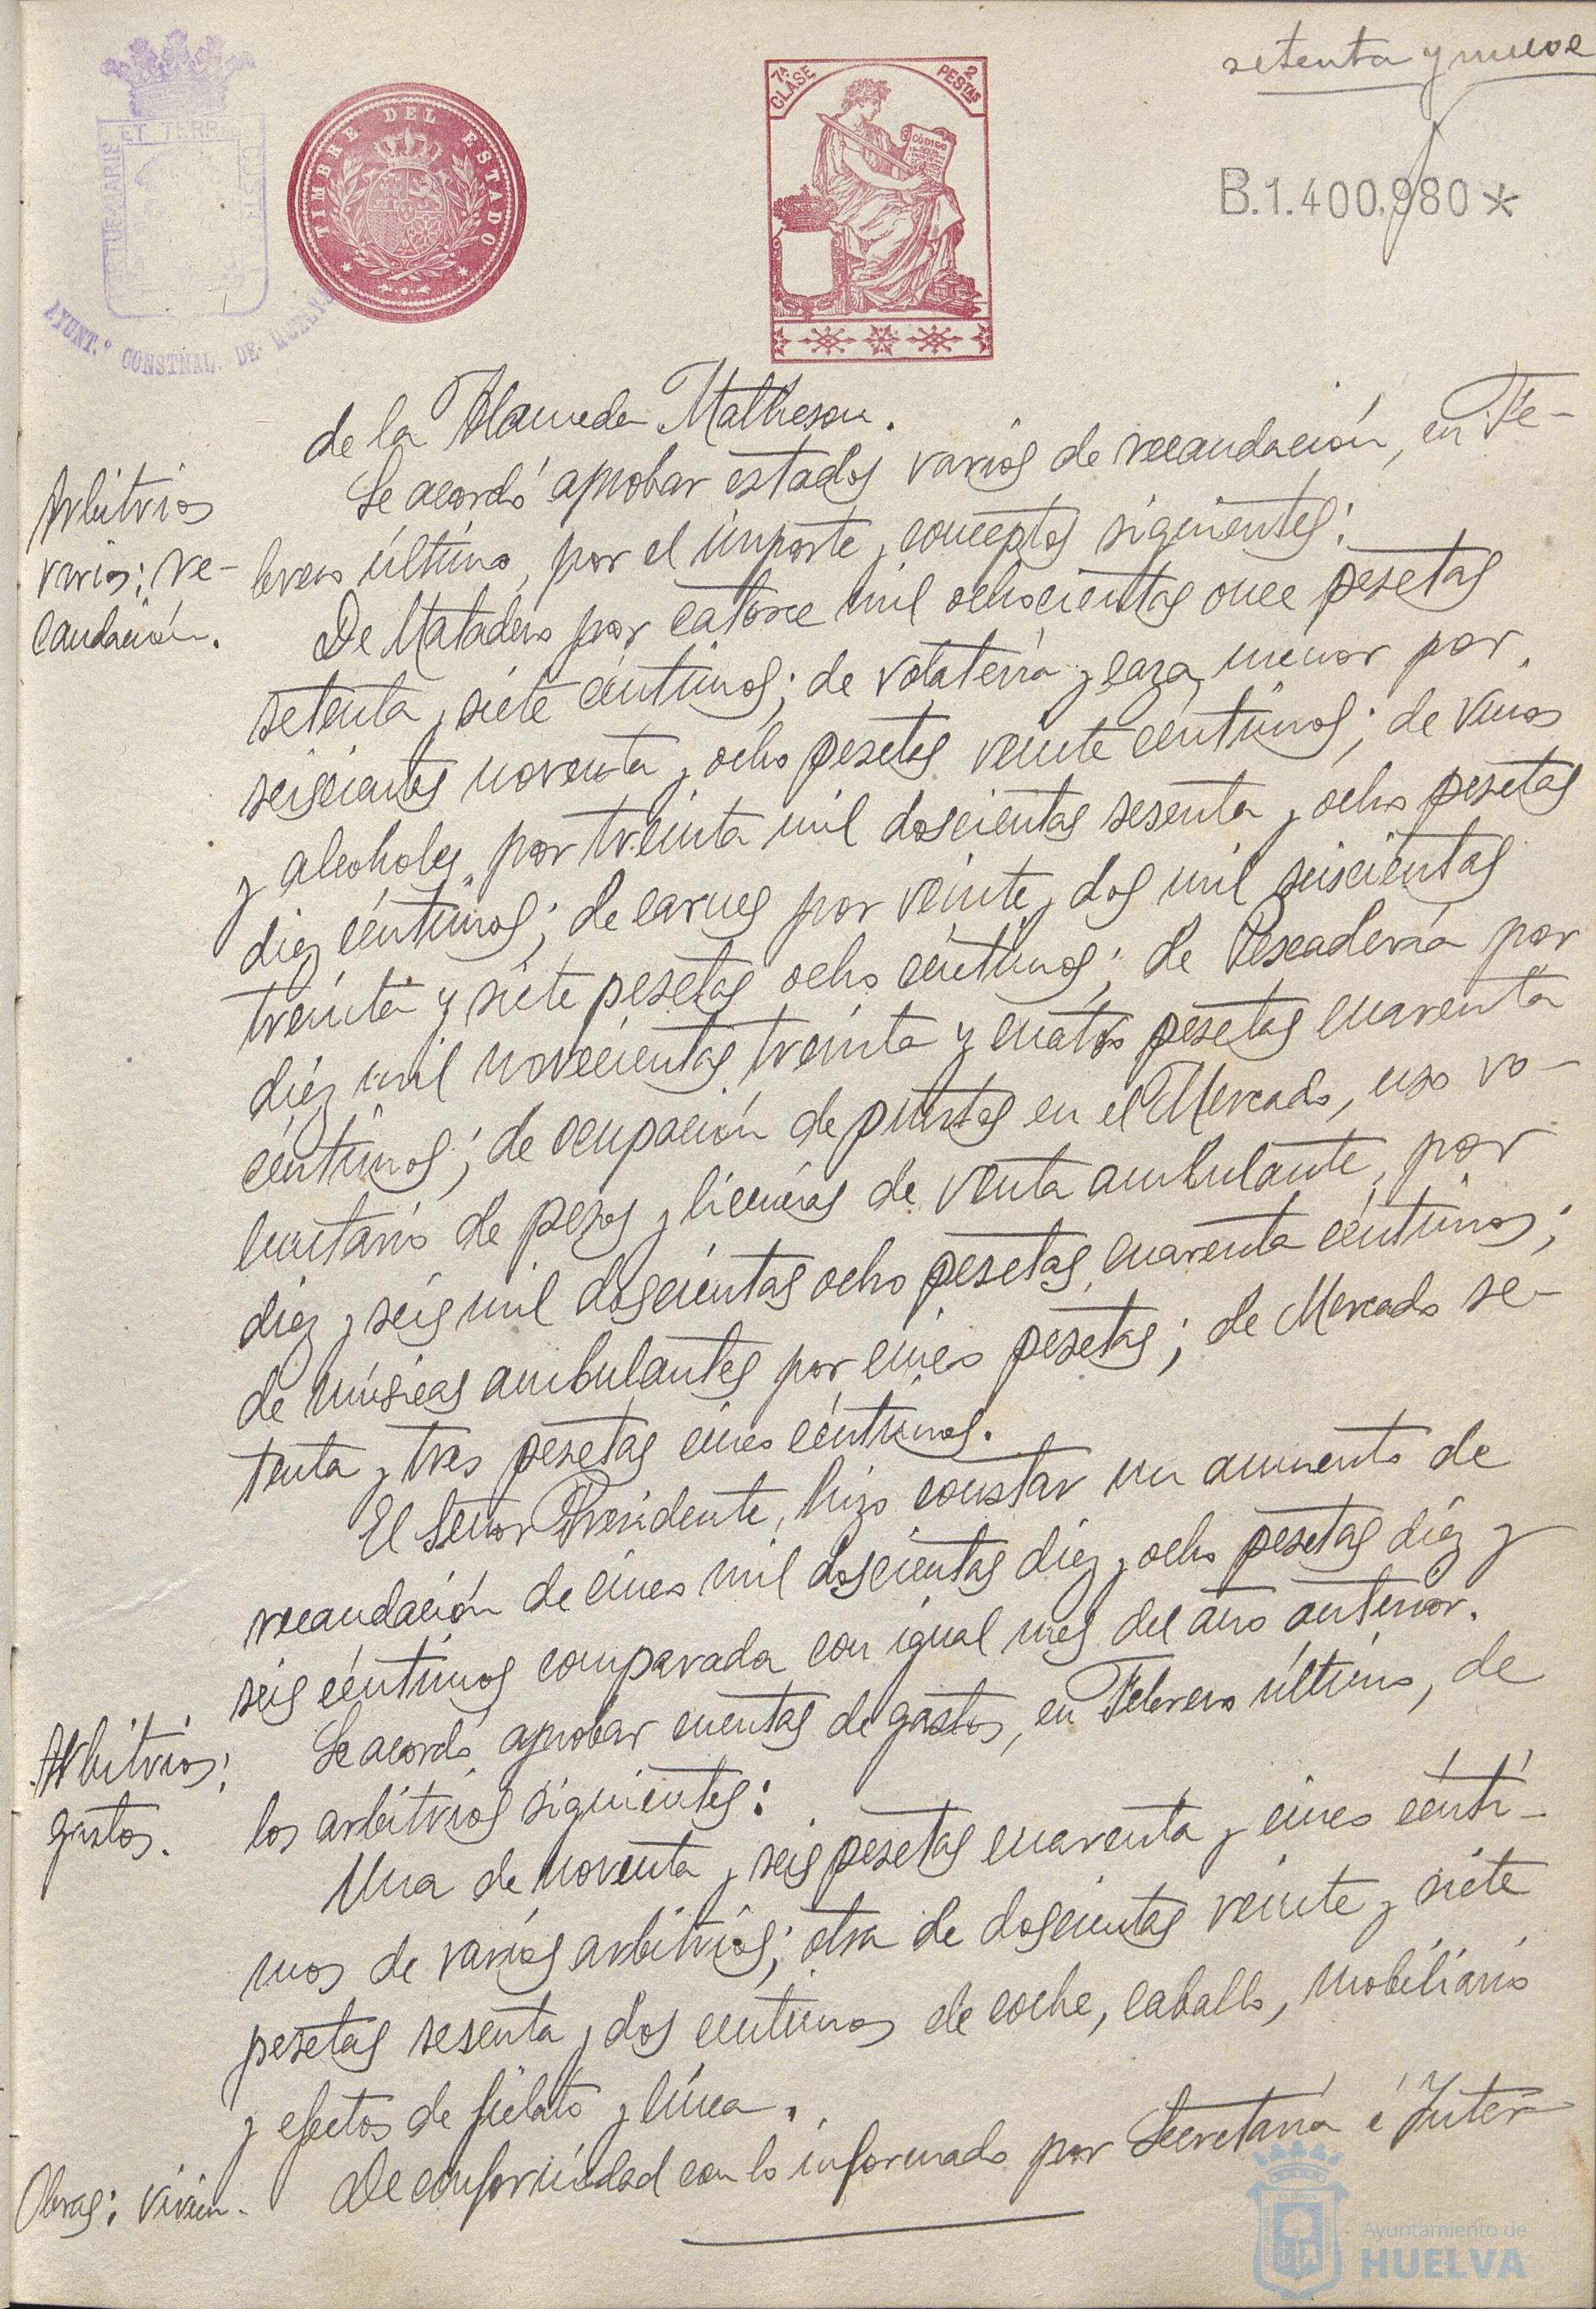 setenta y nueve
TIMBRE DEL ESTADO
7ª CLASE
2 PESTAS
CODIGO
B.1.400,980*
AYUNT.º CONSTNAL. DE HUELVA
de la Alameda Matheson.
Arbitrios
varios: re-
caudación.
Se acordó aprobar estados varios de recaudación, en Fe-
brero último, por el importe y conceptos siguientes:
De Matadero por catorce mil ochocientas once pesetas
setenta y siete céntimos; de volatería y caza menor por
seiscientas noventa y ocho pesetas veinte céntimos; de vinos
y alcoholes, por treinta mil doscientas sesenta y ocho pesetas
diez céntimos; de carnes por veinte y dos mil seiscientas
treinta y siete pesetas ocho céntimos; de Pescadería por
diez mil novecientas treinta y cuatro pesetas cuarenta
céntimos; de ocupación de puestos en el Mercado, uso vo-
luntario de pesos y licencias de venta ambulante, por
diez y seis mil doscientas ocho pesetas cuarenta céntimos;
de músicas ambulantes por cinco pesetas; de Mercado se-
tenta y tres pesetas cinco céntimos.
El Señor Presidente, hizo constar un aumento de
recaudación de cinco mil doscientas diez y ocho pesetas diez y
seis céntimos comparada con igual mes del año anterior.
Arbitrios:
gastos.
Se acordó aprobar cuentas de gastos, en Febrero último, de
los arbitrios siguientes:
Una de noventa y seis pesetas cuarenta y cinco cénti-
mos de varios arbitrios; otra de doscientas veinte y siete
pesetas sesenta y dos centimos de coche, caballo, mobiliario
y efectos de fielato y línea.
Obras: vivien-
De conformidad con lo informado por Secretaría é Inter-
Ayuntamiento de
HUELVA